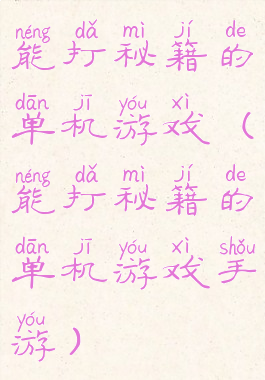 néng dǎ mì jí de
能打秘籍的
dān jī yóu xì
单机游戏（
néng dǎ mì jí de
能打秘籍的
dān jī yóu xì shǒu
单机游戏手
yóu
游）